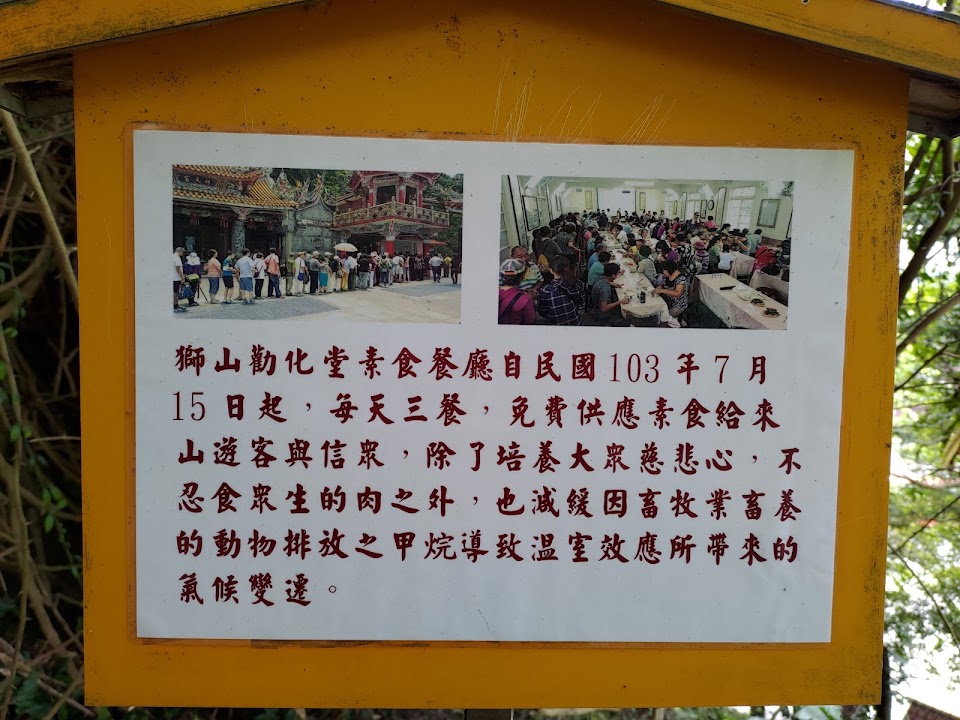 獅山勸化堂素食餐廳自民國103年7月
15日起，每天三餐，免費供應素食給來
山遊客與信眾，除了培養大眾慈悲心，不
忍食眾生的肉之外，也減緩因畜牧業畜養
的動物排放之甲烷導致溫室效應所帶來的
氣候變遷。